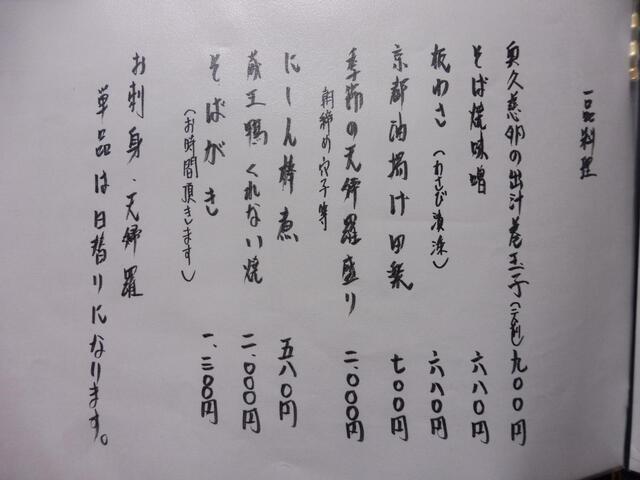 一品料理
奥久慈卵の出汁巻玉子 九〇〇円
そば焼味噌 六八〇円
板わさ（わさび漬添） 六八〇円
京都油揚げ田楽 七〇〇円
季節の天婦羅盛り 二、〇〇〇円
朝締め穴子等
にしん棒煮 五八〇円
蔵王鴨くれない焼 二、〇〇〇円
そばがき 一、二〇〇円
（お時間頂きます）
お刺身・天婦羅
単品は日替りになります。